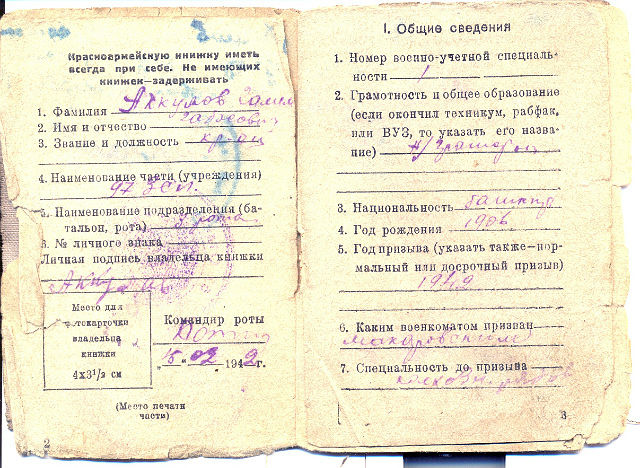 Красноармейскую книжку иметь
всегда при себе. Не имеющих
книжек—задерживать
1. Фамилия Аккулов
2. Имя и отчество
3. Звание и должность кр-ец
4. Наименование части (учреждения)
97 Зсп.
5. Наименование подразделения (ба-
тальон, рота) рота
6. № личного знака
Личная подпись владельца книжки
Аккулов
Место для
фотокарточки
владельца
книжки
4х3½ см
Командир роты
„15" 02 1942г.
(Место печати
части)
2
I. Общие сведения
1. Номер военно-учетной специаль-
ности 1
2. Грамотность и общее образование
(если окончил техникум, рабфак,
или ВУЗ, то указать его назва-
ние)
3. Национальность башкир
4. Год рождения 1906
5. Год призыва (указать также—нор-
мальный или досрочный призыв)
1942
6. Каким военкоматом призван
Макаровским
7. Специальность до призыва
3